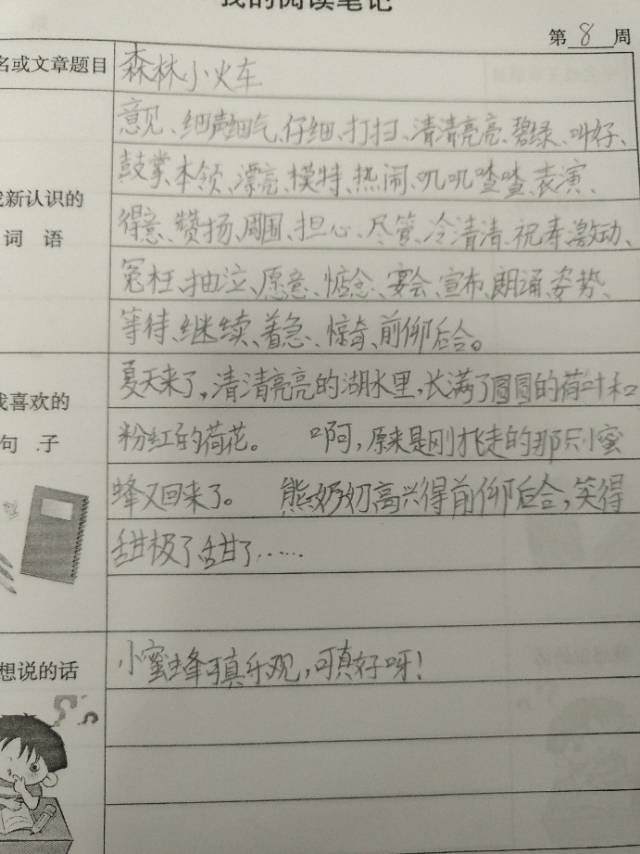 我的阅读笔记
第8周
名或文章题目
森林小火车
我新认识的
词语
意见、细声细气、仔细、打扫、清清亮亮、碧绿、叫好、
鼓掌、本领、漂亮、模特、热闹、叽叽喳喳、表演、
得意、赞扬、周围、担心、尽管、冷清清、祝寿、激动、
冤枉、抽泣、愿意、惦念、宴会、宣布、朗诵、姿势、
等待、继续、着急、惊奇、前仰后合。
我喜欢的
句子
夏天来了,清清亮亮的湖水里,长满了圆圆的荷叶和
粉红的荷花。 啊,原来是刚才走的那只小蜜
蜂又回来了。 熊奶奶高兴得前仰后合,笑得
甜极了甜了……
想说的话
小蜜蜂可真乐观,可真好呀!